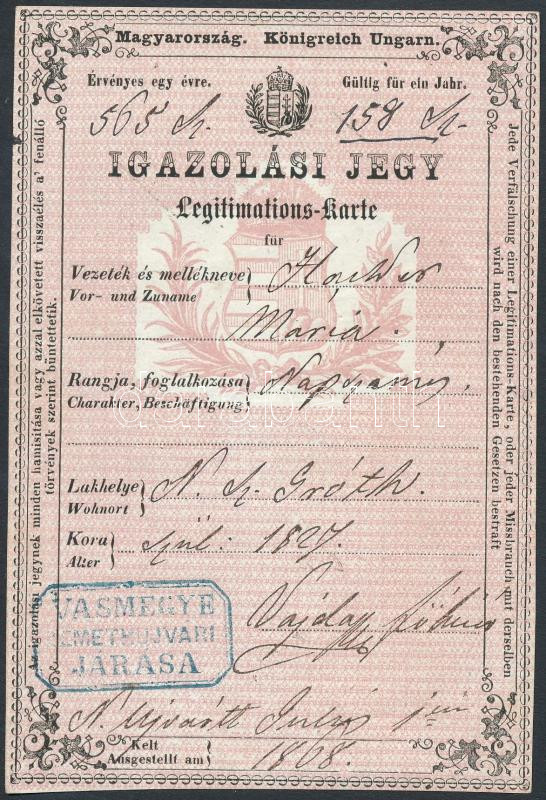 Magyarország. Königreich Ungarn.
Érvényes egy évre. Gültig für ein Jahr.
565 158
IGAZOLÁSI JEGY
Legitimations-Karte
für
Vezeték és mellékneve
Vor- und Zuname
Mária
Rangja, foglalkozása
Charakter, Beschäftigung
Lakhelye N. Sz. Gróth.
Wohnort
Kora szül: 1827.
Alter
VASMEGYE
NÉMETHUJVÁRI
JÁRÁSA
N. Ujvárott
Kelt
Ausgestellt am 1868.
Az igazolási jegynek minden hamisítása vagy azzal elkövetett visszaélés a' fenálló
törvények szerint büntettetik.
Jede Verfälschung einer Legitimations-Karte, oder jeder Missbrauch mit derselben
wird nach den bestehenden Gesetzen bestraft